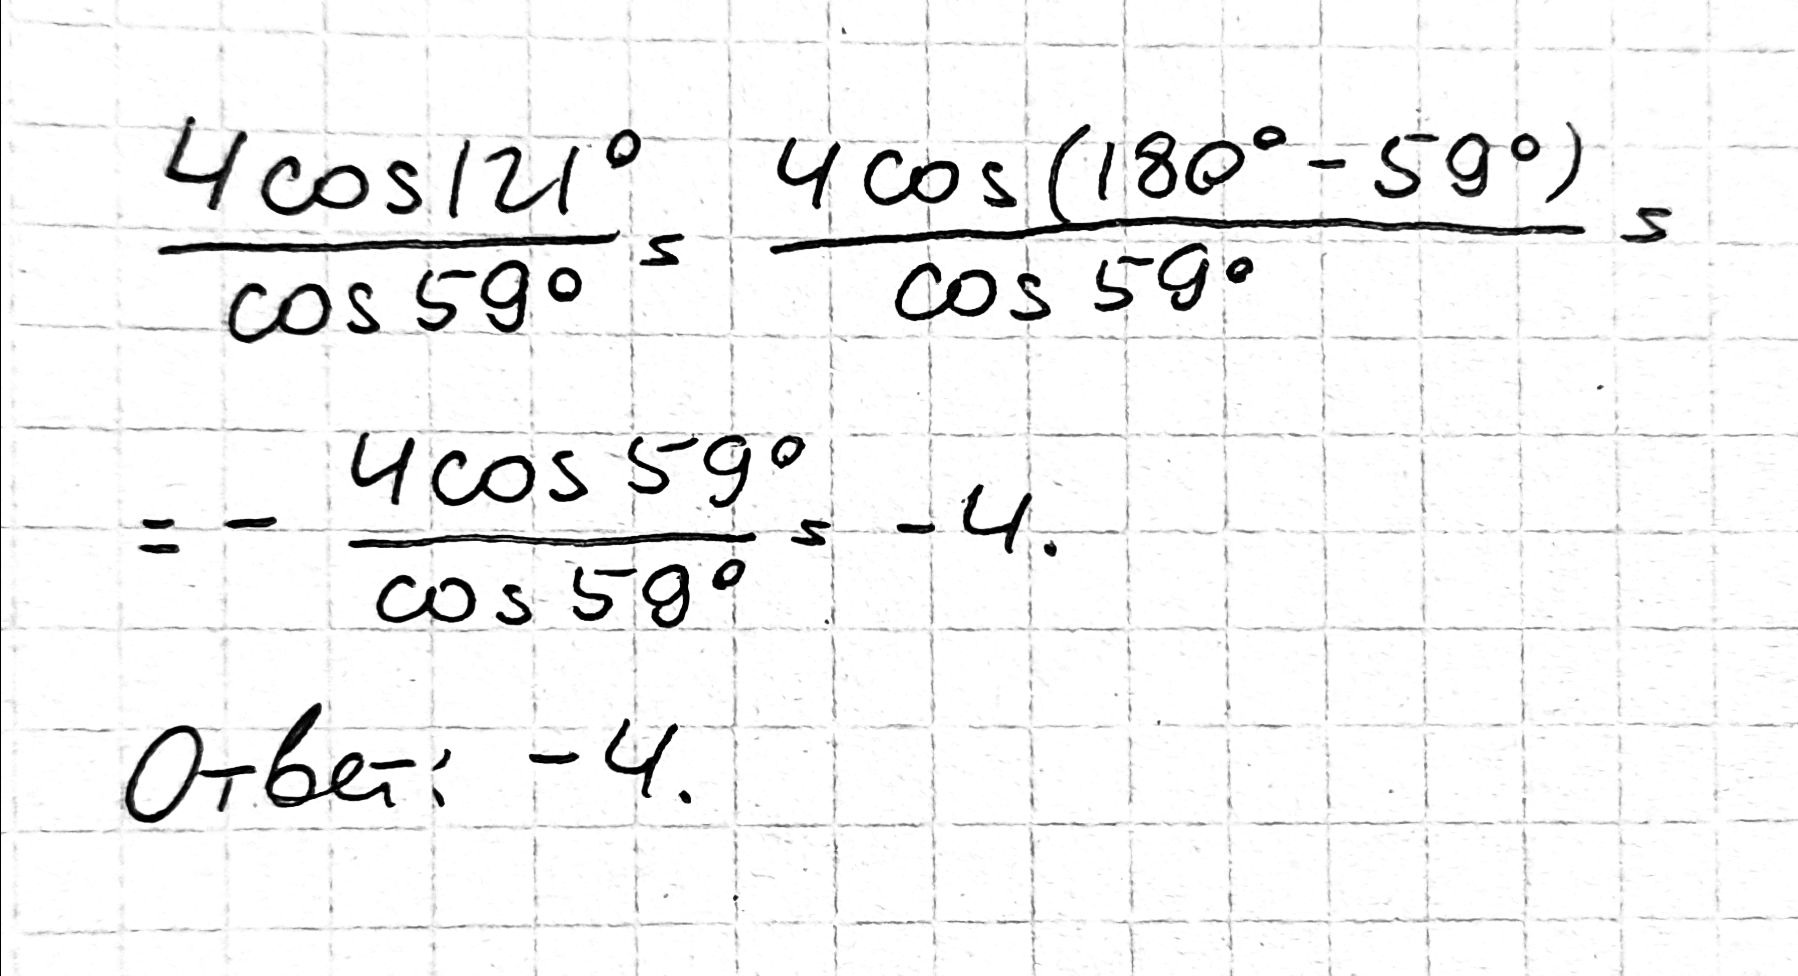 4cos121°/cos59° = 4cos(180°-59°)/cos59° =
= - 4cos59°/cos59° = -4.
Ответ: -4.